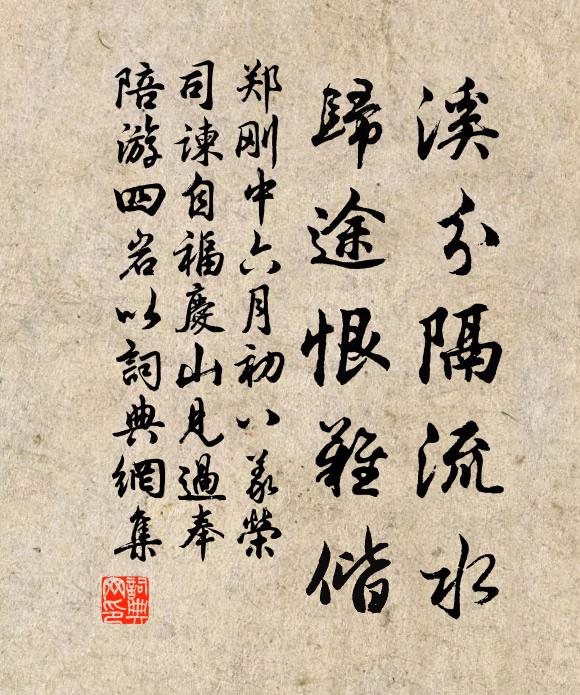 溪分隔流水
歸途恨難偕
郑刚中六月初八義榮
司諫自福慶山見過奉
陪游四岩以詞典網集
詞典
网印